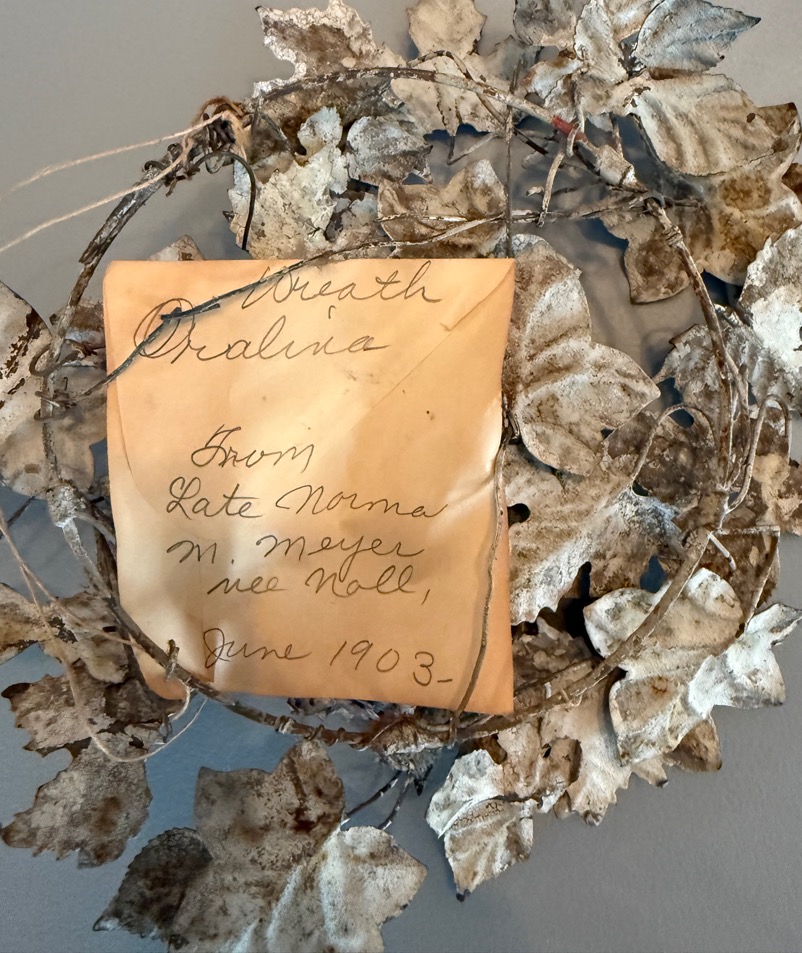 Wreath
Oralina
From
Late Norma
M. Meyer
nee Noll,
June 1903-